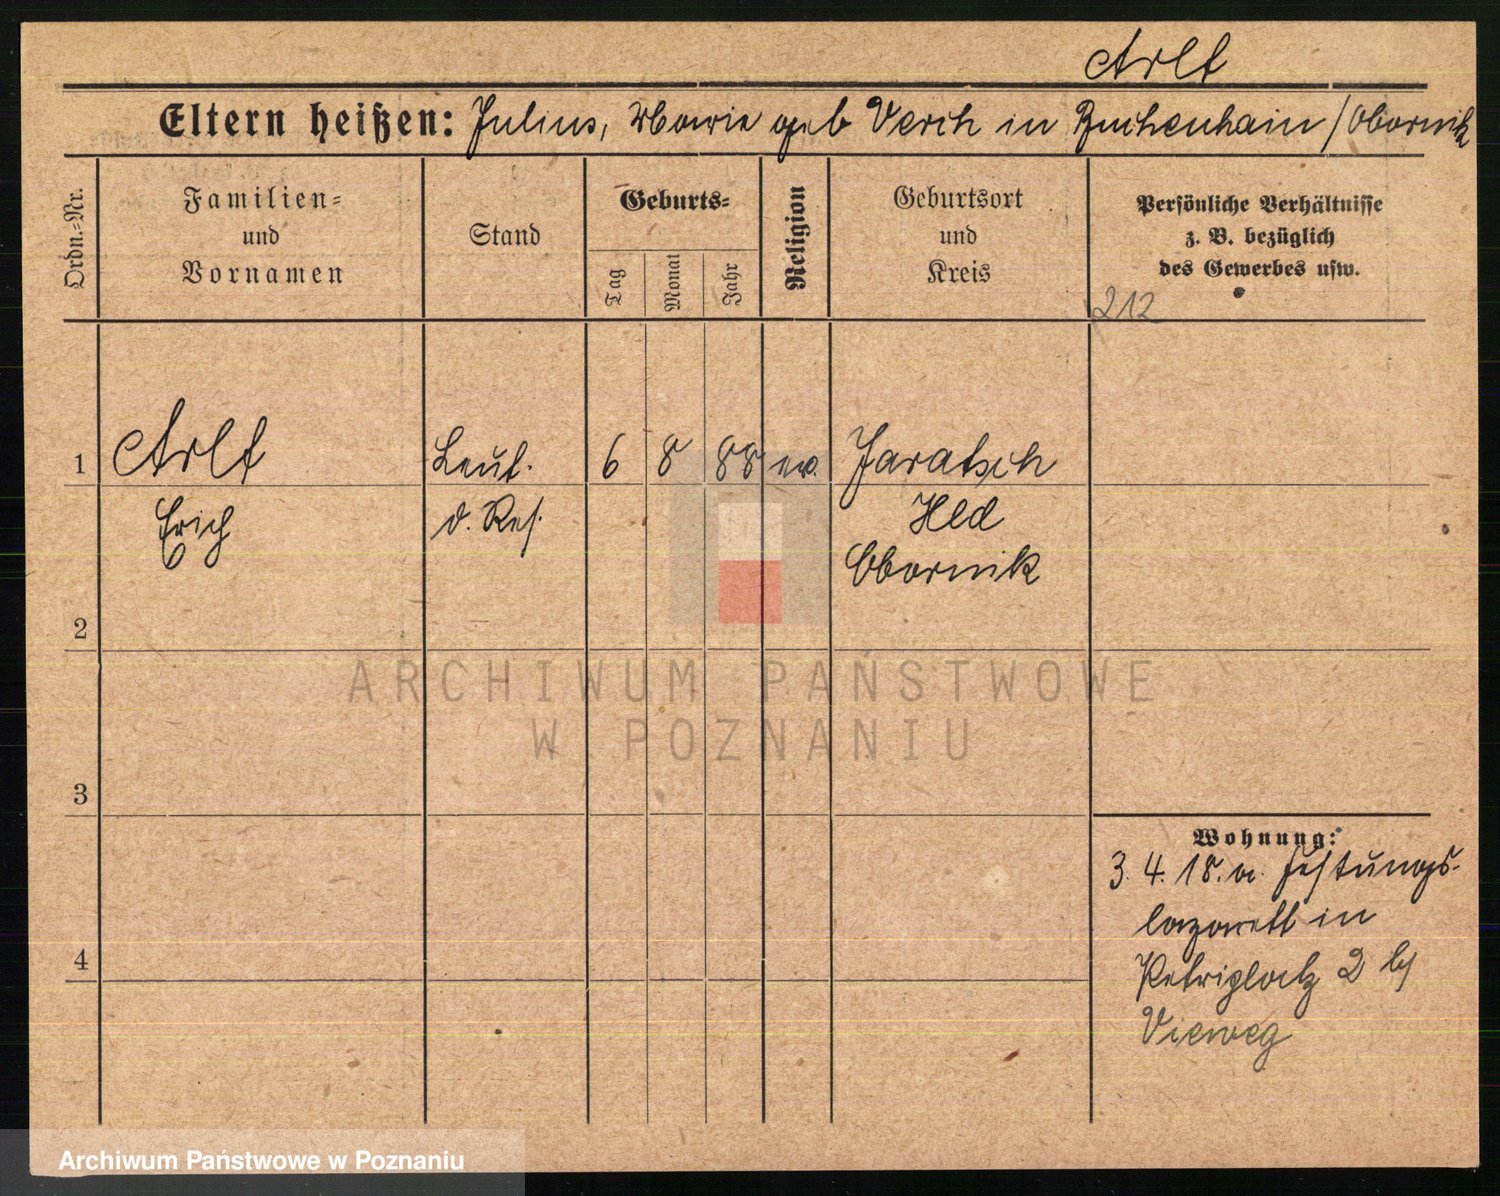 Arlt
Eltern heißen: Julius, Marie geb Verch in Buchenhain / Obornik
Ordn.=Nr.
Familien=
und
Vornamen
Stand
Geburts=
Tag
Monat
Jahr
Religion
Geburtsort
und
Kreis
Persönliche Verhältnisse
z. B. bezüglich
des Gewerbes usw.
212
1 Arlt Leut. 6 8 88 ev. Jaratsch
Erich d. Res. Hld
Obornik
2
3
4
Wohnung:
3. 4. 18. a. Festungs-
lazarett in
Petriplatz 2 b/
Vieweg
ARCHIWUM PAŃSTWOWE
W POZNANIU
Archiwum Państwowe w Poznaniu